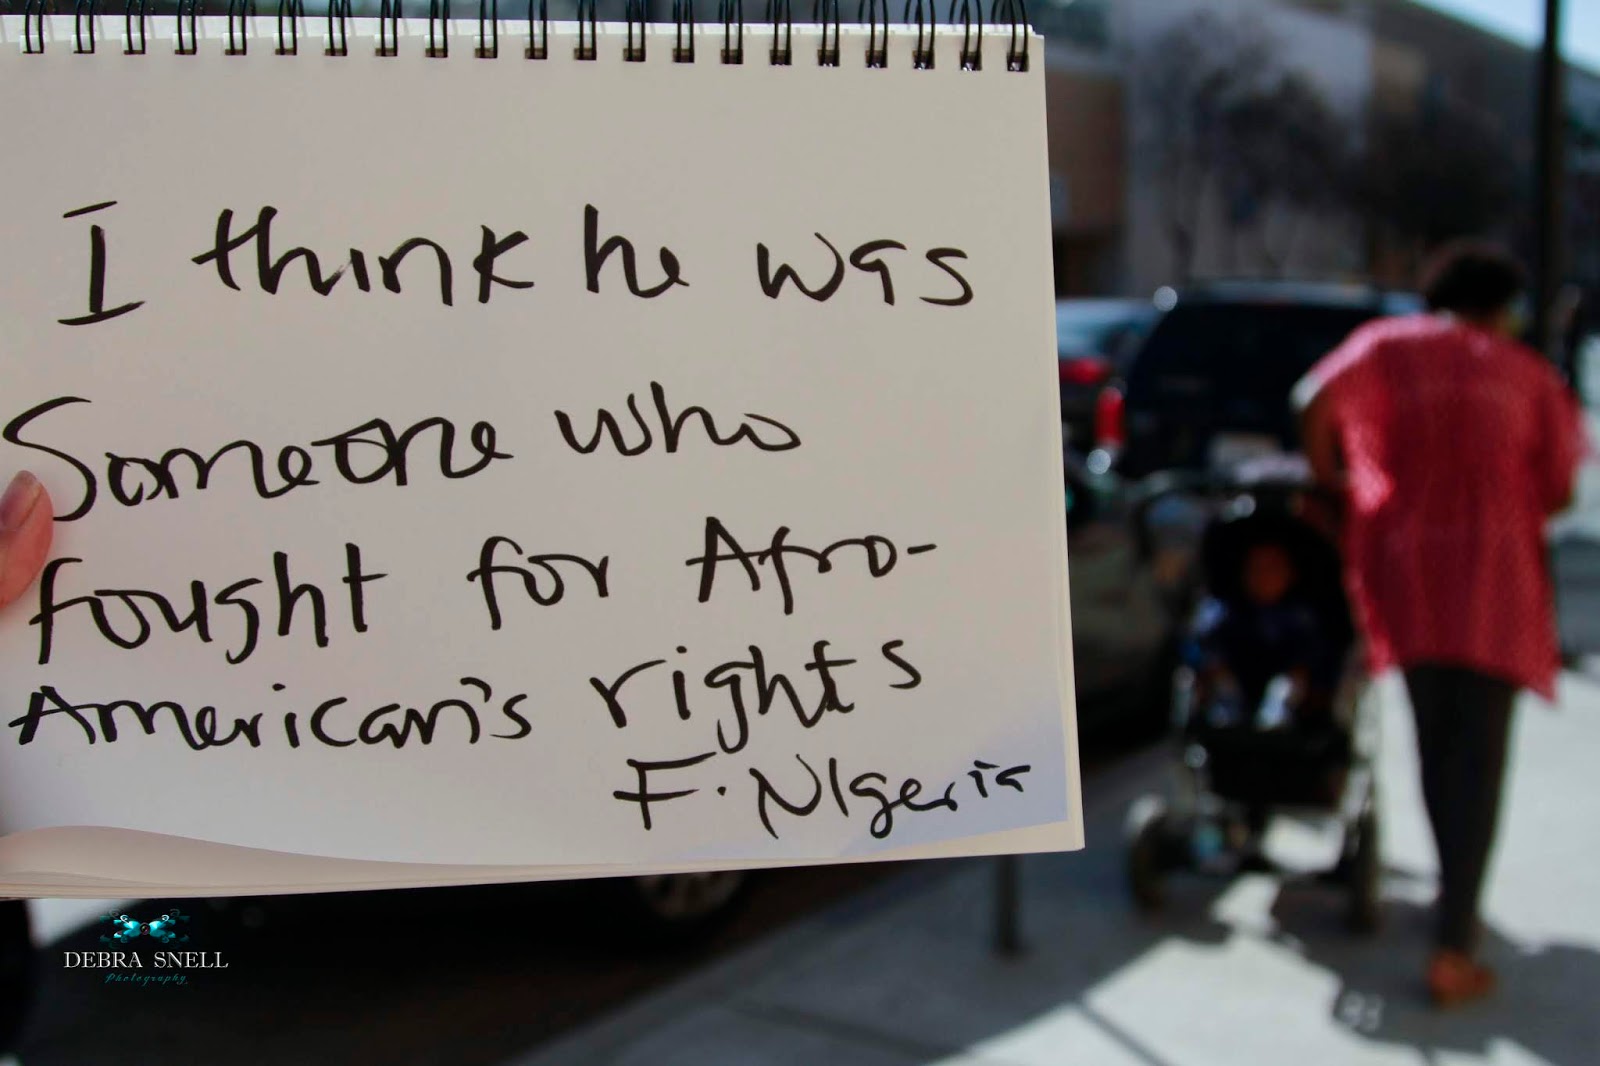 I think he was
Someone who
fought for Afro-
American's rights
F. NIgeria
DEBRA SNELL
Photography